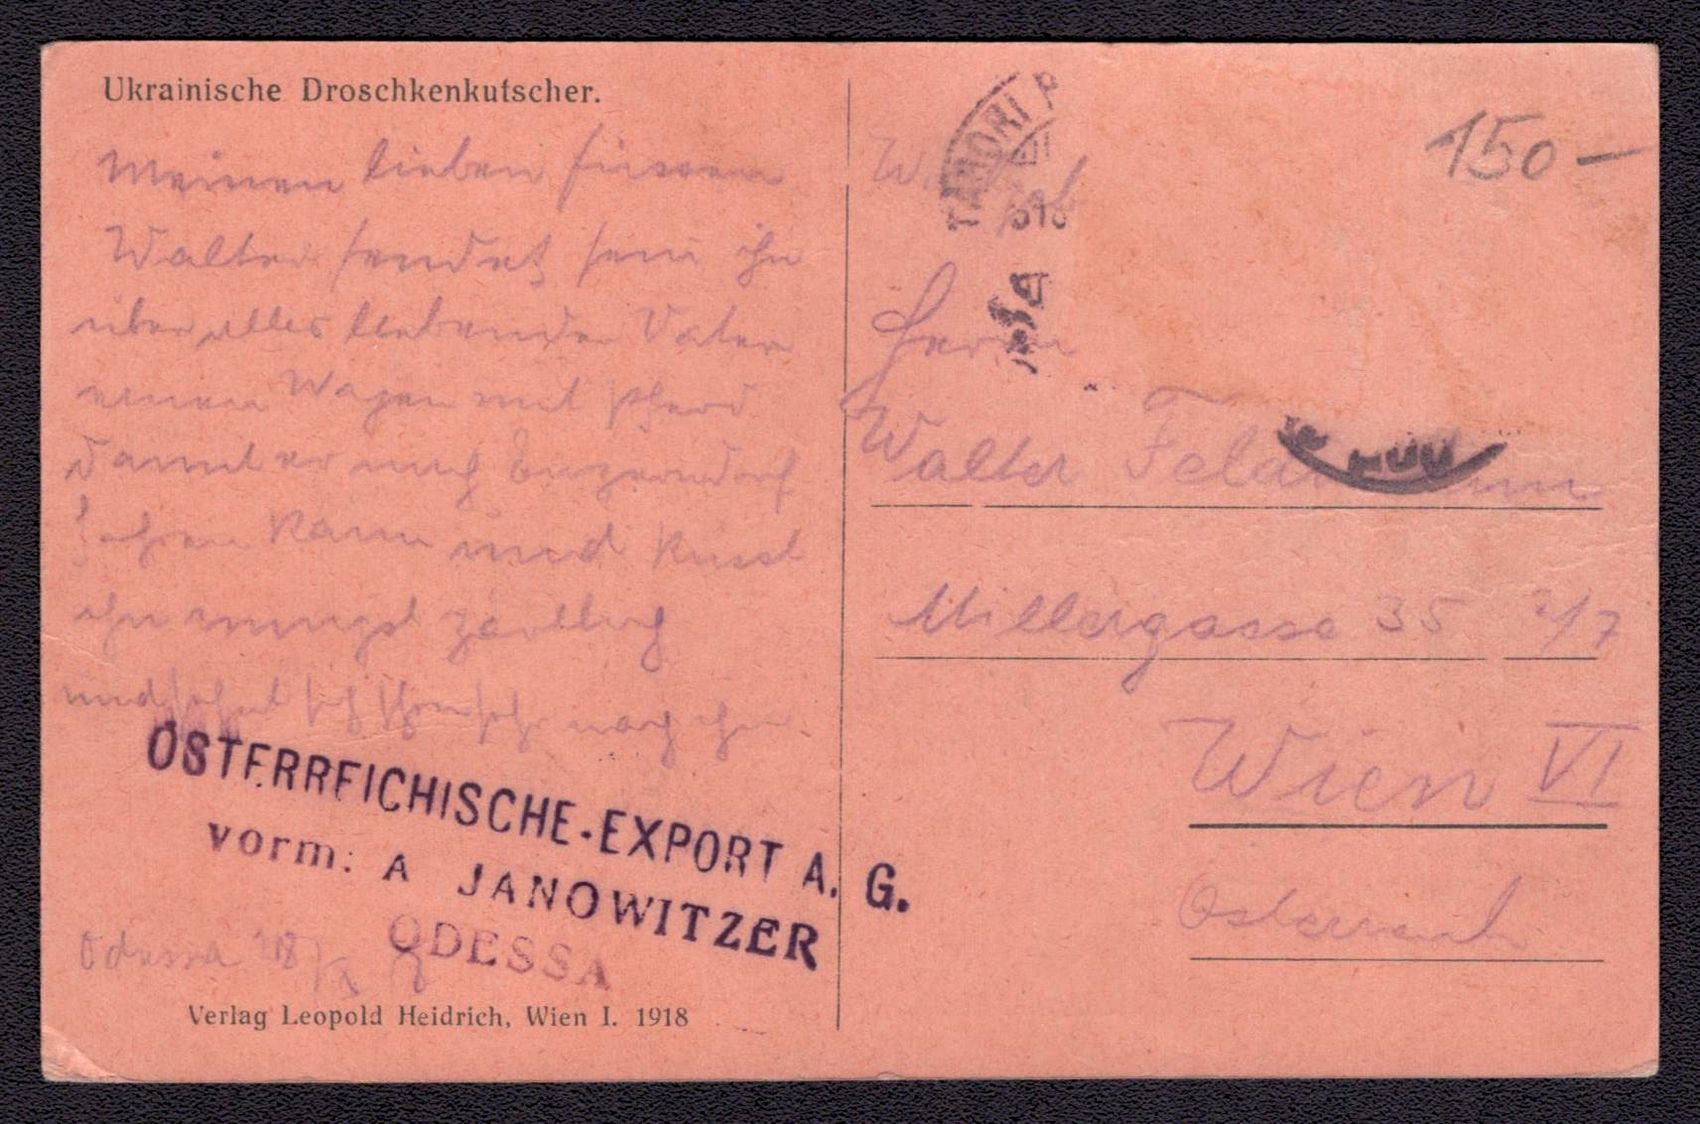 Ukrainische Droschkenkutscher.
Meinen lieben süssen
Walter sendet sein ihn
über alles liebender Vater
einen Wagen mit Pferd
damit er nach Enzersdorf
fahren kann und küsst
ihn innigst zärtlich
und sehnt sich nach ihm
ÖSTERREICHISCHE-EXPORT A. G.
vorm: A JANOWITZER
ODESSA
Odessa 18/X
Verlag Leopold Heidrich, Wien I. 1918
TABORI P
150 –
Herrn
Walter Feldmann
Millergasse 35 2/7
Wien VI
Österreich